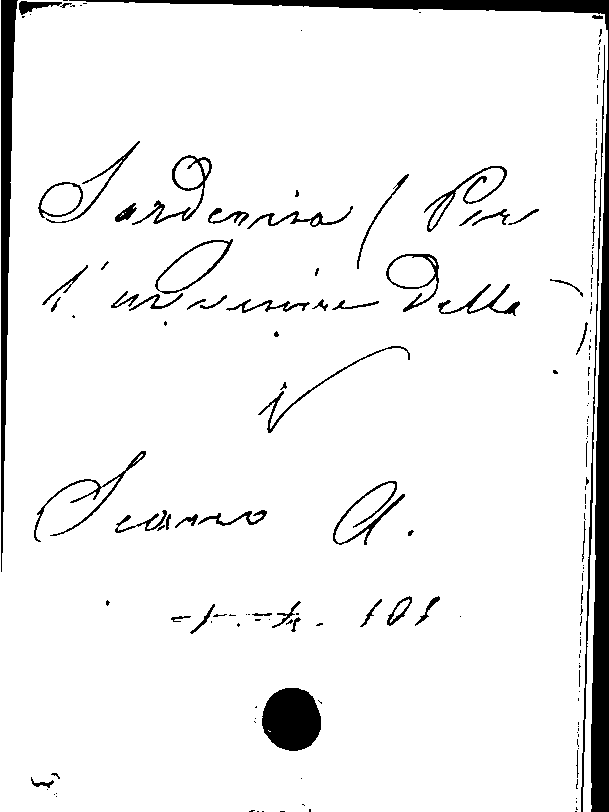 Sardegna (Per
l'avvenire della)
V
Scano A.
101